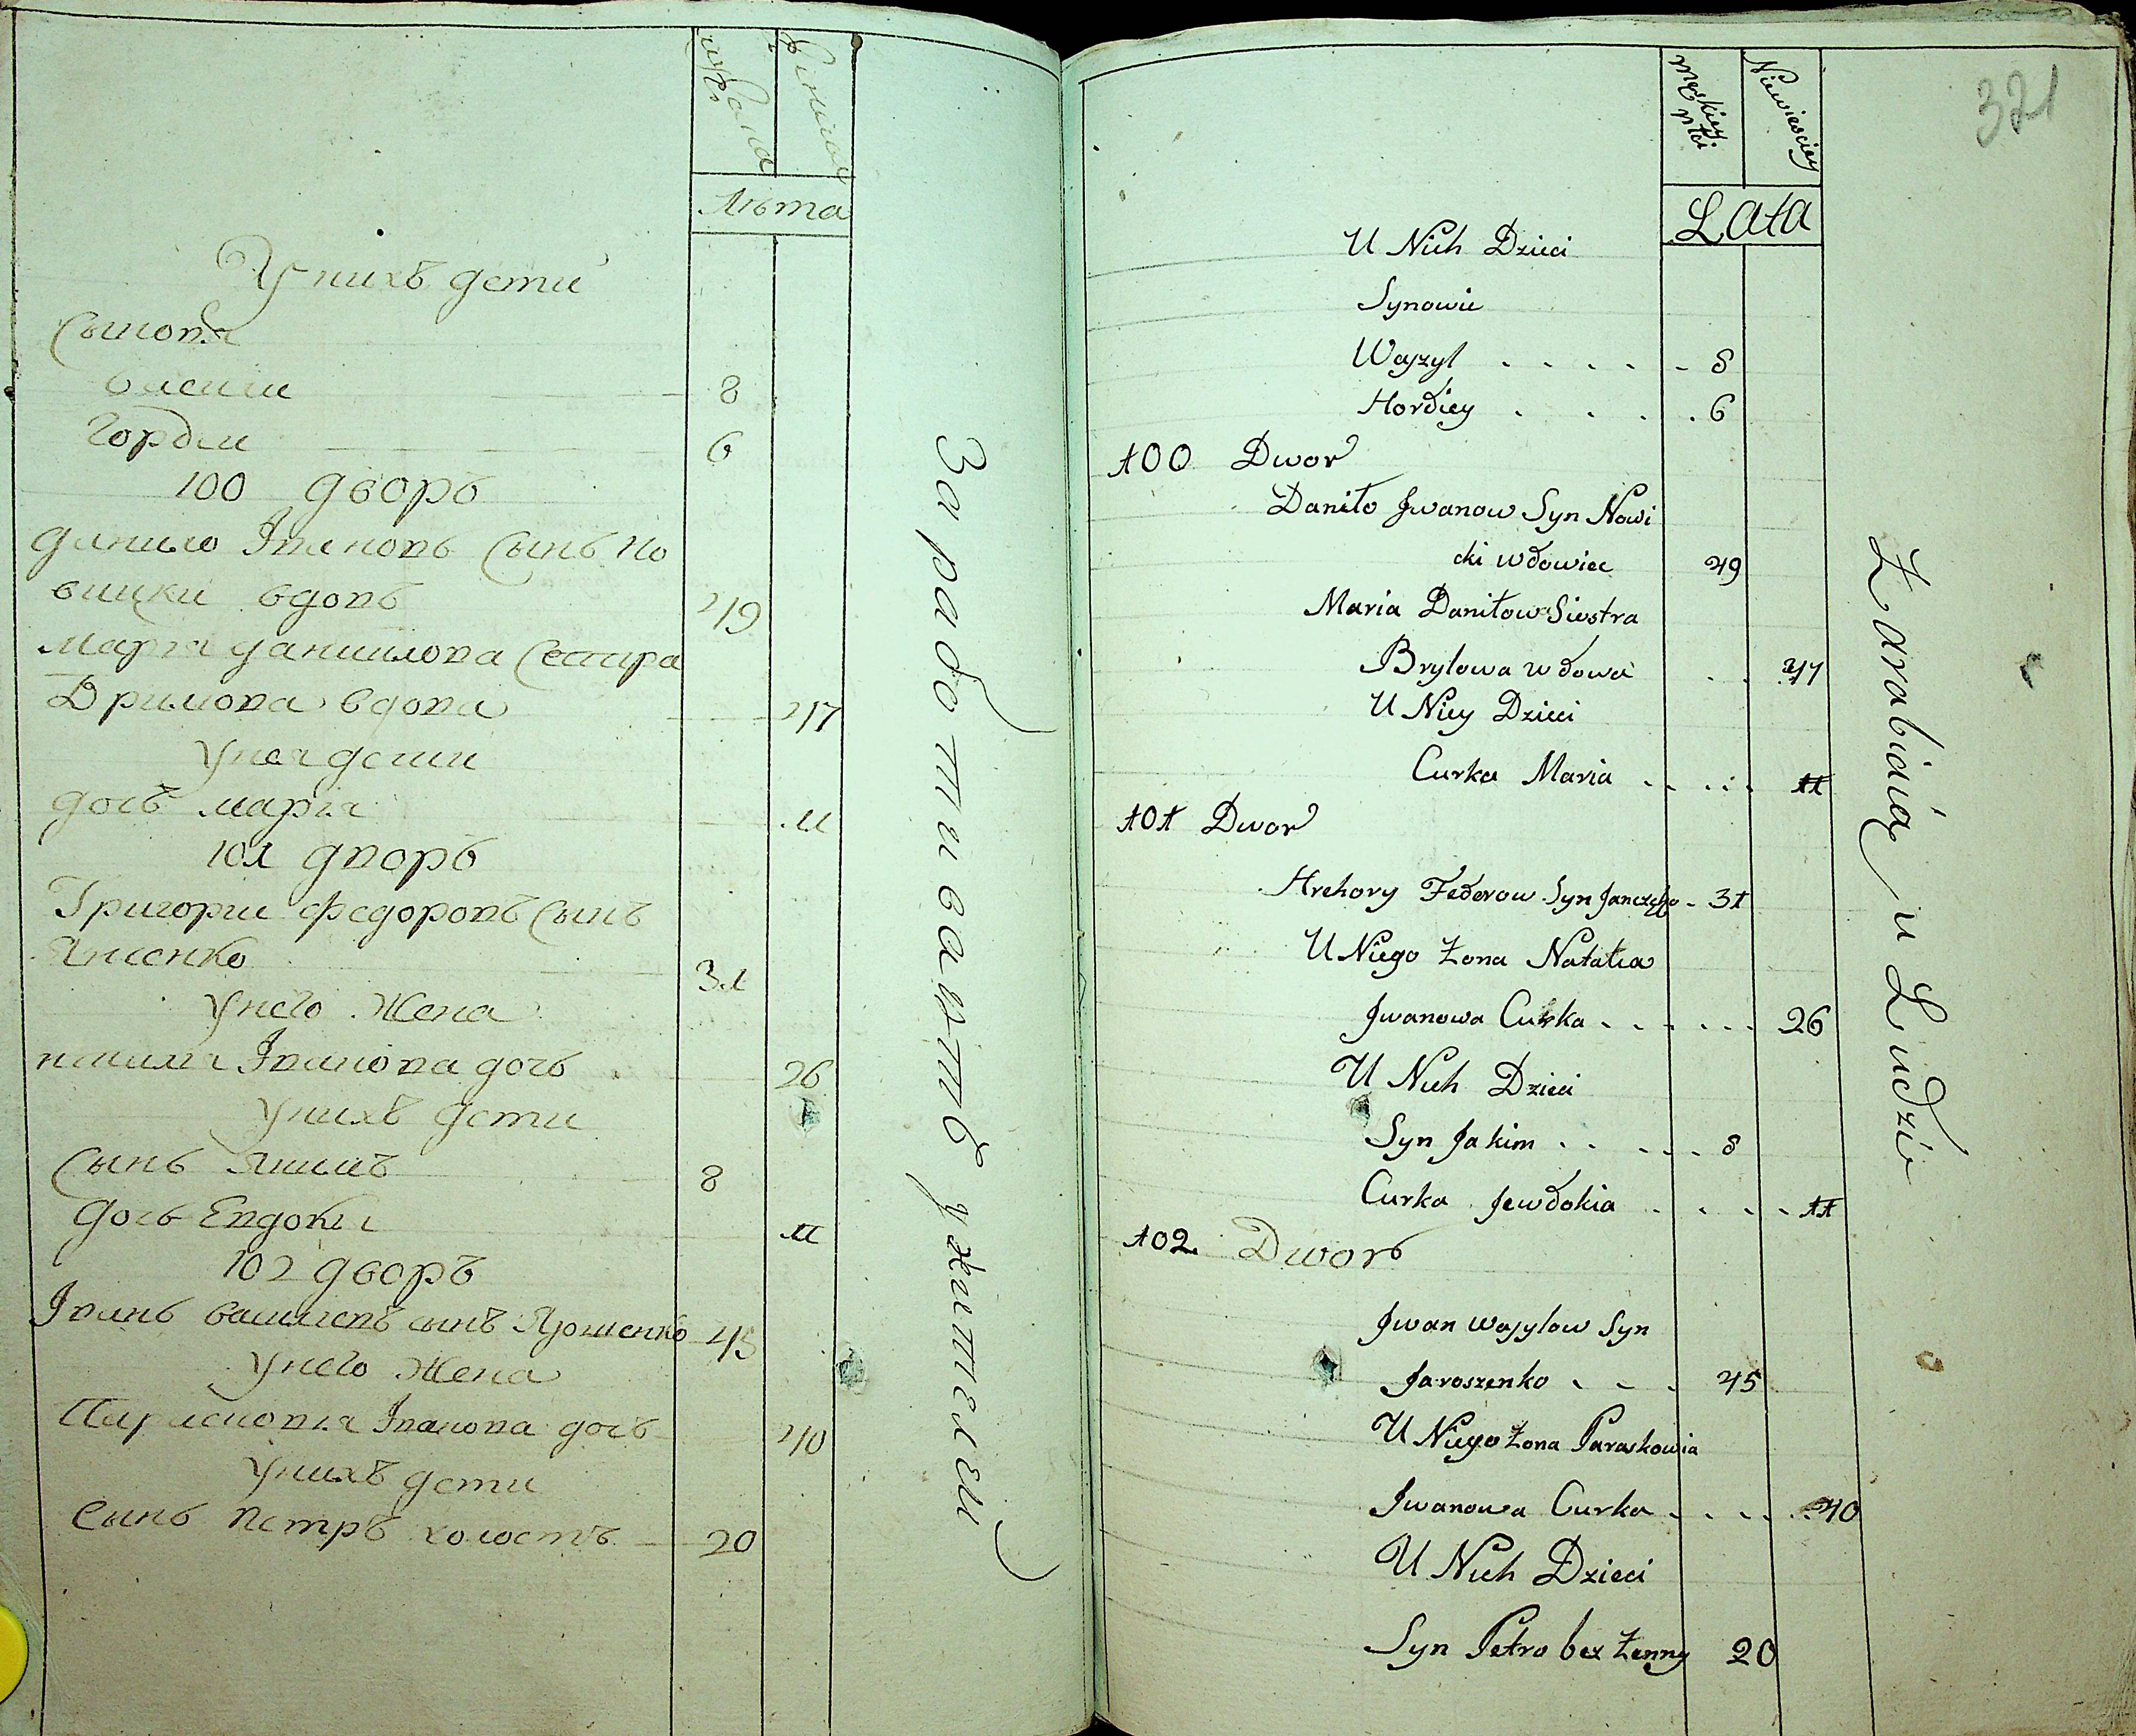 Лѣта
У нихъ дети
Сынове
Василий 8
Гордѣй 6
100 дворъ
Данило Ивановъ Сынъ Но
вицки вдовъ 49
Мария Даниилова Сестра
Брилова вдова 47
У нея дети
дочь Мария 11
101 дворъ
Григорий Федоровъ Сынъ
31
У него Жена
Наталия Иванова дочь 26
У нихъ дети
Сынъ Якимъ 8
Дочь Евдокия 11
102 дворъ
Иванъ Василиевъ сынъ Ярошенко 45
У него Жена
Парасковия Иванова дочь 40
У нихъ дети
Сынъ Петръ холостъ 20
Заработиваютъ у жителей
321
Męskiey płci
Niewiesciey
Lata
U Nich Dzieci
Synowie
Wasyl 8
Hordiey 6
100 Dwor
Daniło Jwanow Syn Nowi
cki wdowiec 49
Maria Daniłow Siostra
Brylowa wdowa 47
U Niey Dzieci
Curka Maria 11
101 Dwor
Hrehory Fedorow Syn 31
U Niego Żona Natalia
Jwanowa Curka 26
U Nich Dzieci
Syn Jakim 8
Curka Jewdokia 11
102 Dworъ
Jwan Wasylow Syn
Jaroszenko 45
U Niego Żona Paraskowia
Jwanowa Curka 40
U Nich Dzieci
Syn Petro bez Żenny 20
Zarabiaią u Ludzi